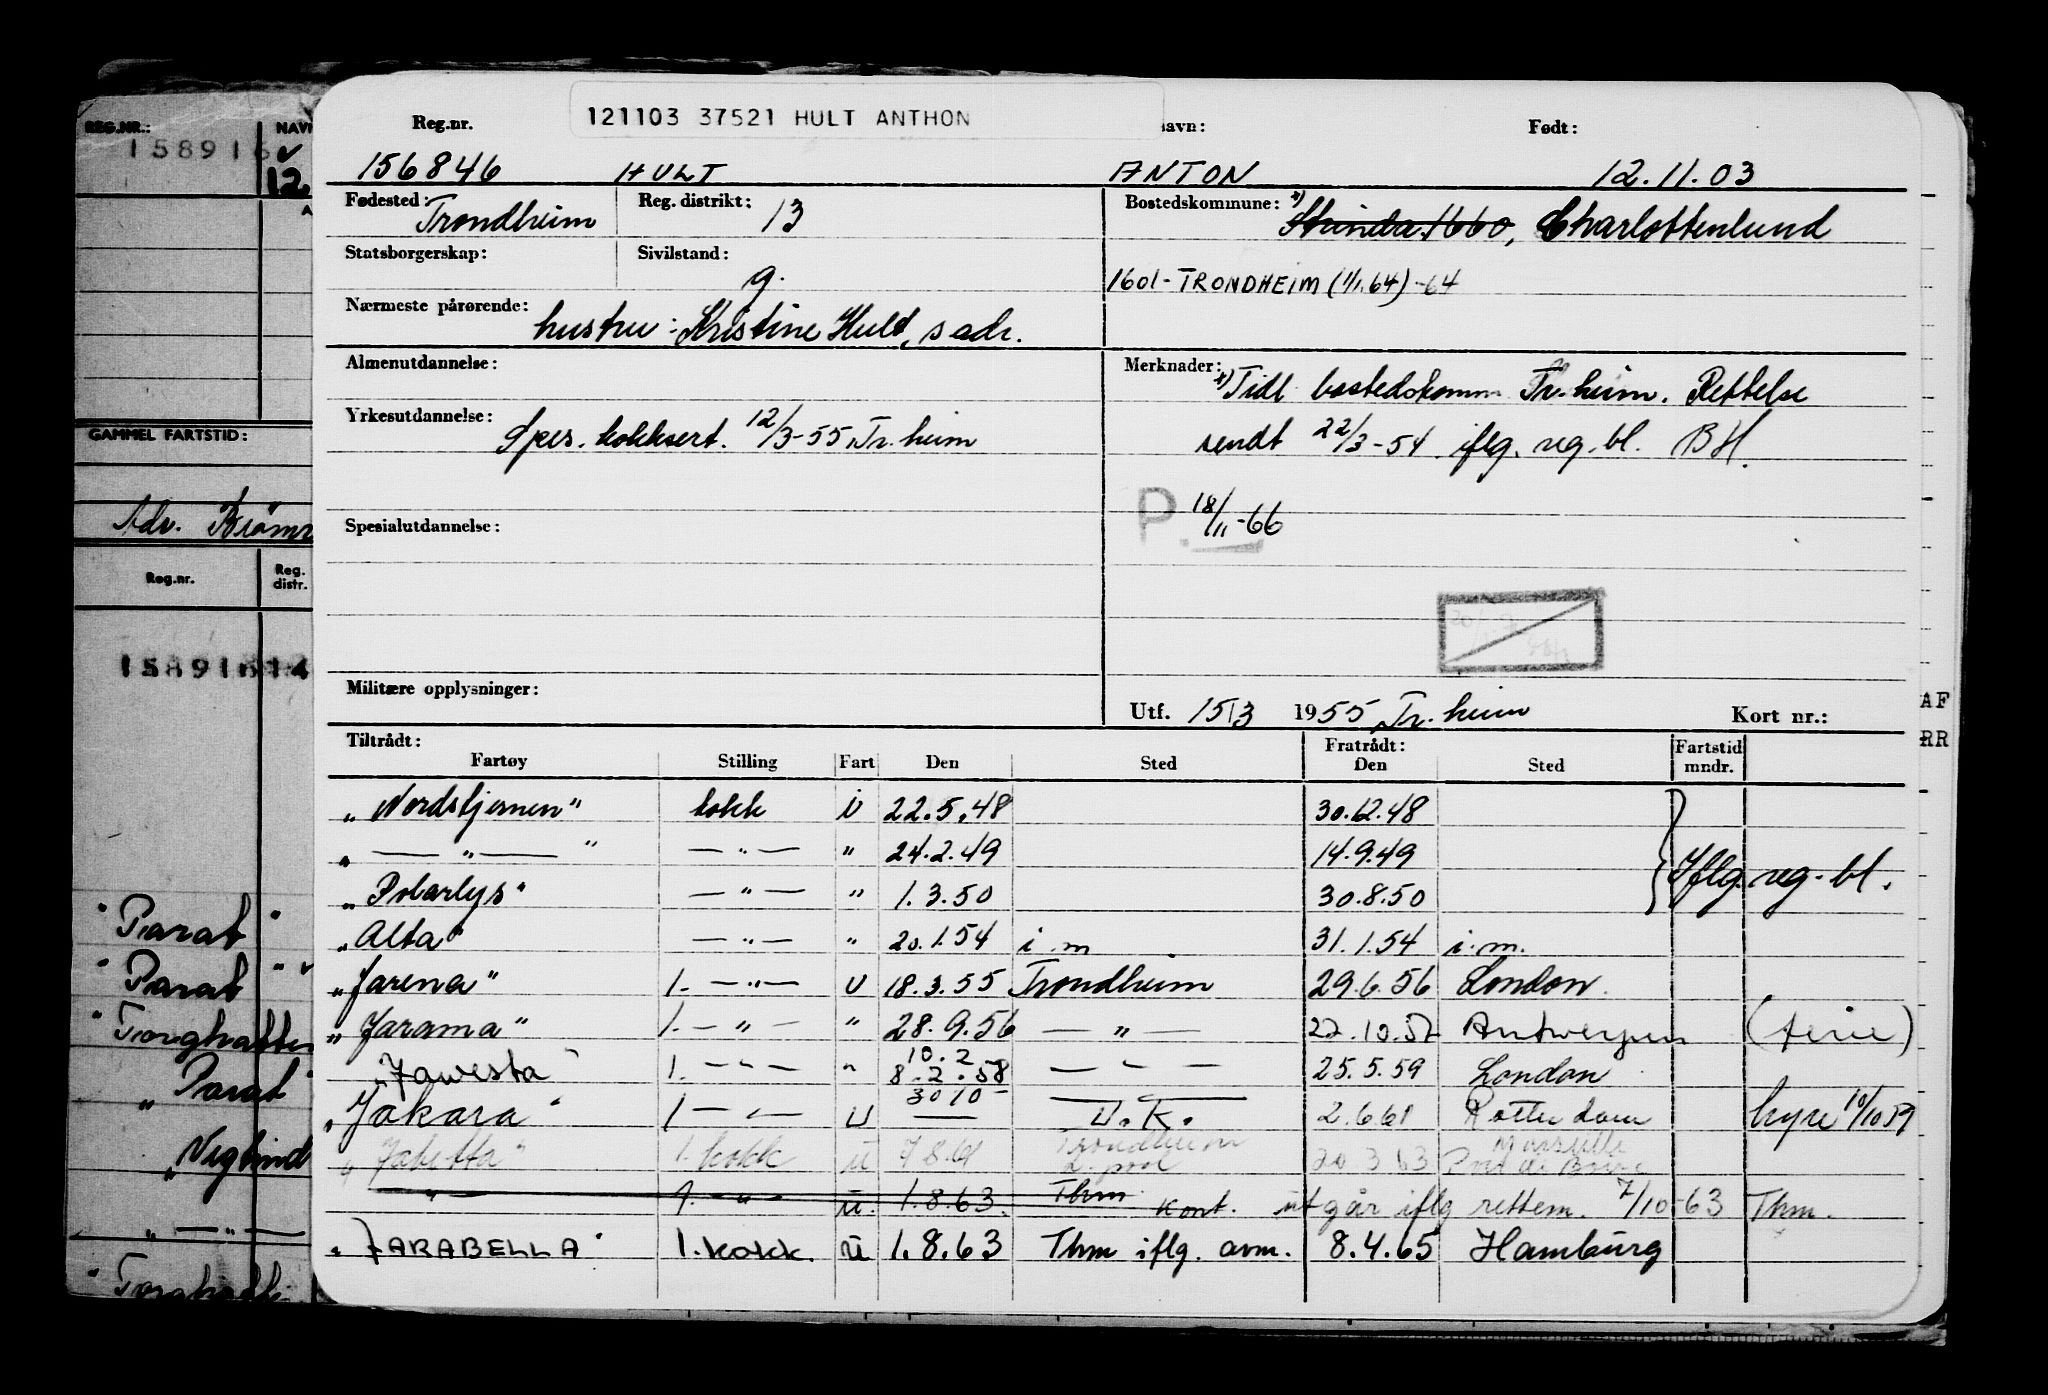 REG.NR.:
NAVN
158916
12.
GAMMEL FARTSTID:
Adr.
Reg.nr.
Reg. distr.
158916 14
"Parat"
"Parat"
"Torghatten
"Parat"
"
" — " —
"
121103 37521 HULT ANTHON
Reg.nr. avn: Født:
156846 HULT ANTON 12.11.03
Fødested: Trondheim Reg. distrikt: 13 Bostedskommune: x) Strinda 1660, Charlottenlund
Statsborgerskap: Sivilstand: g. 1601 - TRONDHEIM (1/1.64) -64
Nærmeste pårørende: hustru: Kristine Hult, s adr.
Almenutdannelse: Merknader: x) Tidl bostedskomm Tr.heim. Rettelse
Yrkesutdannelse: Spes. kokksert. 12/3-55 Tr.heim sendt 22/3-54 iflg. reg. bl. BH.
P. 18/11-66
Spesialutdannelse:
Militære opplysninger:
Utf. 15/3 1955 Tr.heim Kort nr.:
AF
RR
Tiltrådt: Fratrådt: Fartstid mndr.
Fartøy Stilling Fart Den Sted Den Sted
"Nordstjernen" kokk i 22.5.48 30.12.48
" — " — " — " — " 24.2.49 14.9.49
"Polarlys" — " — " 1.3.50 30.8.50 Iflg. reg. bl.
"Alta" — " — " 20.1.54 i.m 31.1.54 i.m.
"Jarena" 1. — " — U 18.3.55 Trondheim 29.6.56 London
"Jarama" 1. — " — " 28.9.56 — " — 22.10.57 Antwerpen (ferie)
10.2
"Jawesta" 1. — " — " 8.2.58 — " — 25.5.59 London
30/10 -
"Jakara" 1 — " — U — U.K. 2.6.61 Rotterdam hyre 10/10 59
Trondheim Marseille
"Jabetta" 1. kokk u 7.8.61 L.pool 20.3.63 Port de Bouc
— " — 1. — " — u. 1.8.63. Thm Kont. utgår iflg rettem. 7/10-63 Thm.
"JARABELLA" 1. kokk. u 1.8.63 Thm iflg. avm. 8.4.65 Hamburg